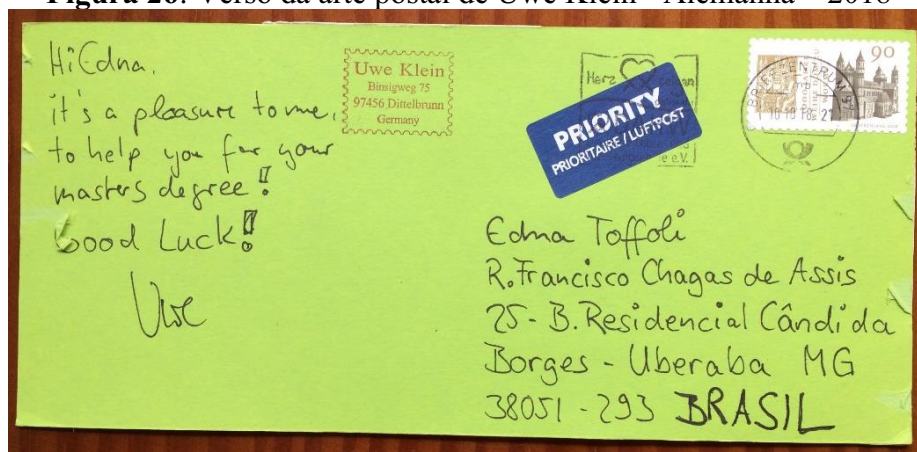 Figura 26: Verso da arte postal de Uwe Klein - Alemanha – 2018
Hi Edna,
it's a pleasure to me,
to help you for your
masters degree!
Good Luck!
Uwe
Uwe Klein
Binsigweg 75
97456 Dittelbrunn
Germany
Herz
PRIORITY
PRIORITAIRE / LUFTPOST
e.V.
BRIEFZENTRUM 97
90
Edna Toffoli
R. Francisco Chagas de Assis
25 - B. Residencial Cândida
Borges - Uberaba MG
38051 - 293 BRASIL